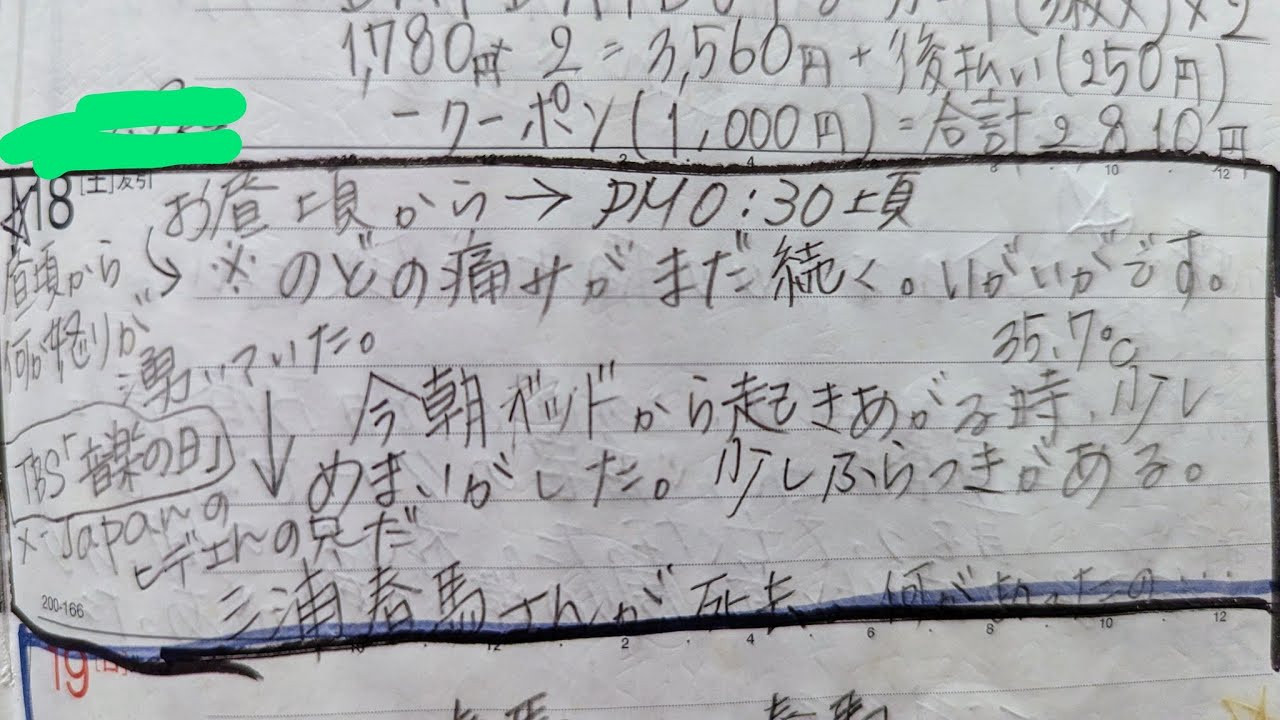 1,780円×2=3,560円+後払い(250円)
-クーポン(1,000円)=合計2810円
2 4 8 10 12
18 [土]友引
お昼頃から→PM0:30頃
※のどの痛みがまだ続く。いがいがです。
35.7℃
昼頃から
何か怒りが
湧いていた。
今朝ベッドから起きあがる時、少し
めまいがした。少しふらつきがある。
TBS「音楽の日」
X-Japanの
ヒデさんの兄だ
三浦春馬さんが死去、何があったの…
200-166
10 12 2 4 6 8 10 12
19
春馬